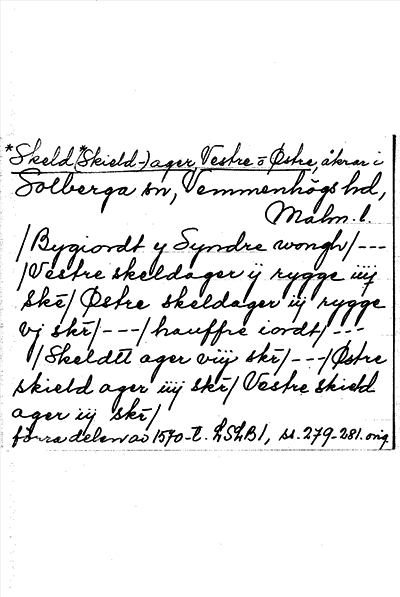 *Skeld(*Skield-)ager, Vestre o Østre, åkrar i
Solberga sn, Vemmenhögs hd,
Malm. l.
/Bygiordt y Syndre wongh/---
/Vestre skeldager ÿ rygge iiij
skr̄/ Østre skeldager iij rygge
vj skr̄/---/hauffre iordt/---
/Skeldtt ager viij skr̄/---/Østre
skield ager iiij skr̄/ Vestre skield
ager iij skr̄/
förra delen av 1570-t. LSLB1, ss. 279-281. orig